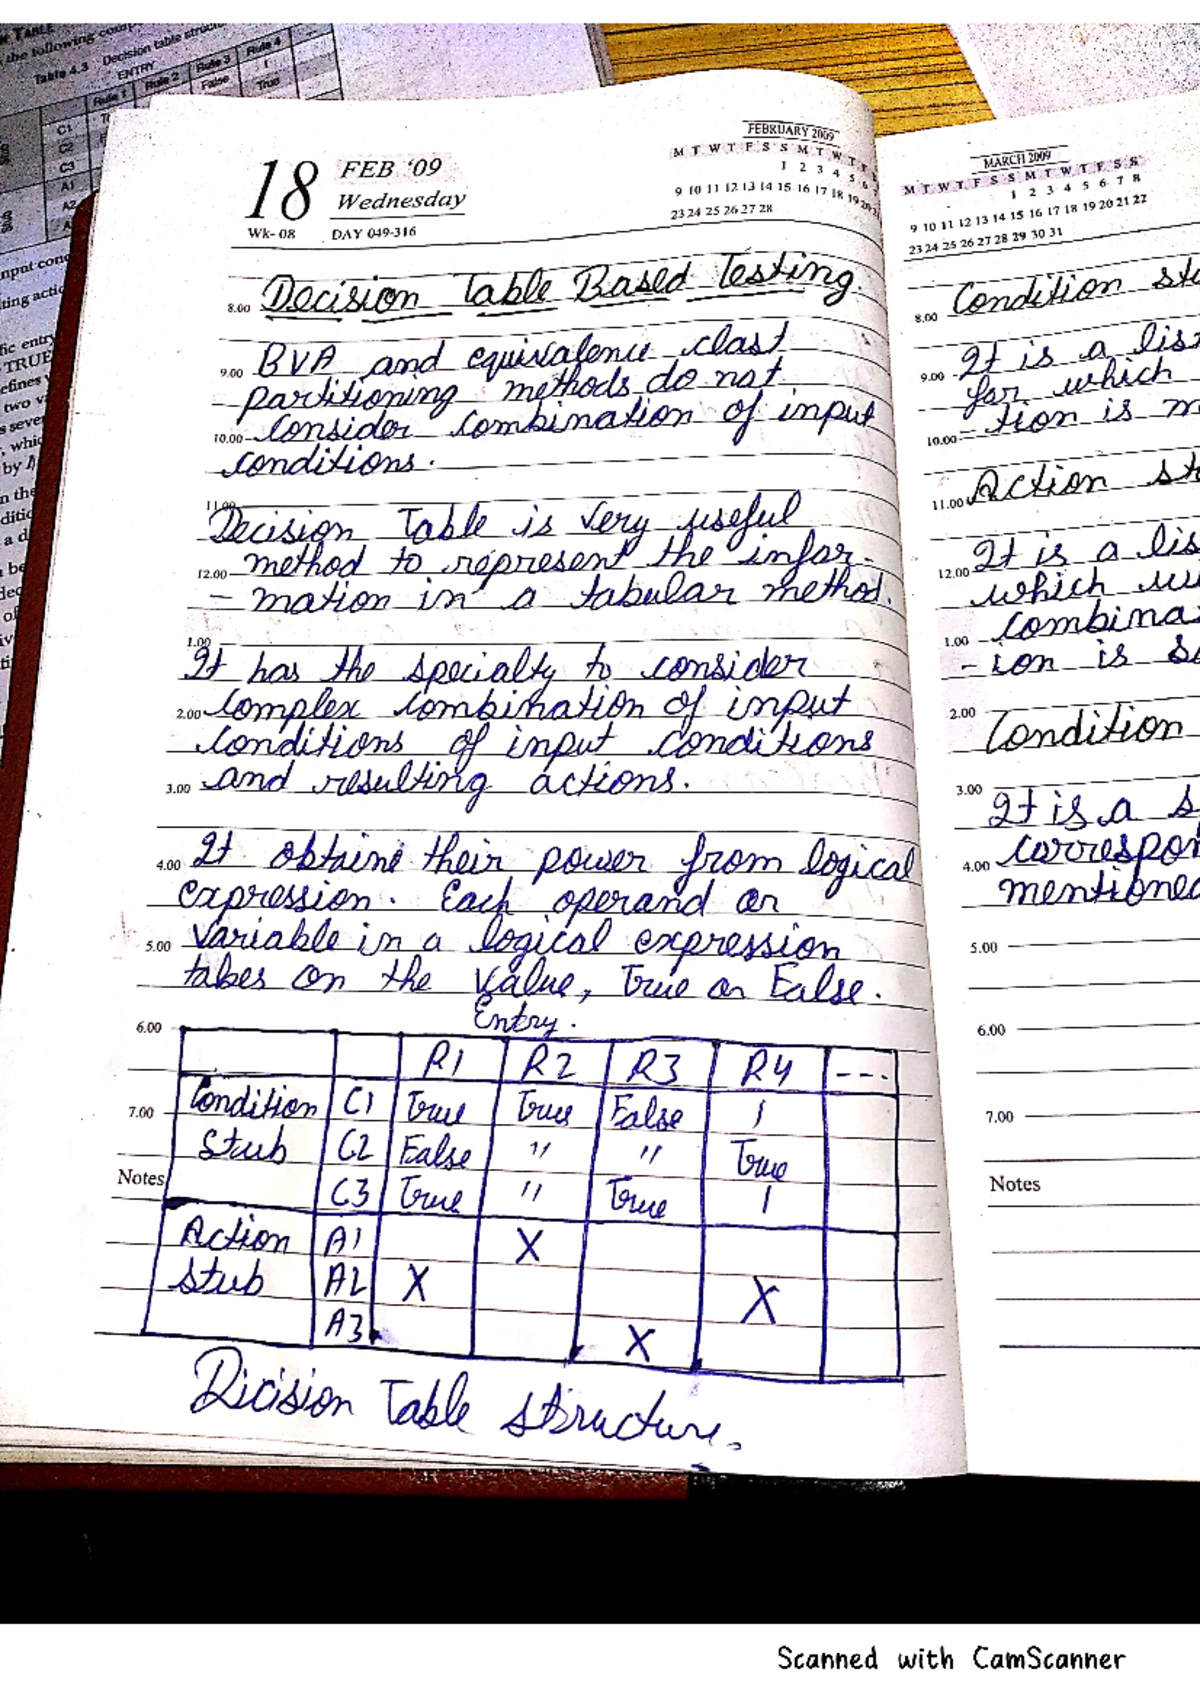 N TABLE
the following comp
Table 4.3 Decision table struc
ENTRY
Rule 1 Rule 2 Rule 3 Rule 4 ...
False I
True
C1
C2
C3
A1
A2
nput con
ting acti
fic entry
TRUE
efines
two v
s seve
, whic
by
n the
ditic
a d
be
18 FEB ‘09
Wednesday
Wk- 08 DAY 049-316
FEBRUARY 2009
M T W T F S S M T W T F
1 2 3 4 5 6
9 10 11 12 13 14 15 16 17 18 19 20
23 24 25 26 27 28
8.00 Decision Table Based Testing.
9.00 BVA and equivalence clast
partitioning methods do not
10.00 Consider Combination of input
conditions.
11.00
Decision Table is very useful
12.00 method to represent the infor-
- mation in a tabular method.
1.00
It has the specialty to consider
2.00 Complex Combination of input
Conditions of input conditions
3.00 and resulting actions.
4.00 It obtains their power from logical
expression. Each operand or
5.00 Variable in a logical expression
takes on the Value, True or False.
Entry.
6.00
R1 R2 R3 R4 ---
7.00 Condition C1 True True False I
Stub C2 False " " True
Notes C3 True " True I
Action A1 X
Stub A2 X X
A3 X
Dicision Table structure.
MARCH 2009
M T W T F S S M T W T F S S
1 2 3 4 5 6 7 8
9 10 11 12 13 14 15 16 17 18 19 20 21 22
23 24 25 26 27 28 29 30 31
8.00 Condition st
9.00 It is a lis
for which
10.00 - tion is m
11.00 Action st
12.00 It is a lis
which wi
1.00 combina
- ion is s
2.00 Condition
3.00 It is a s
4.00 correspon
mentioned
5.00
6.00
7.00
Notes
Scanned with CamScanner